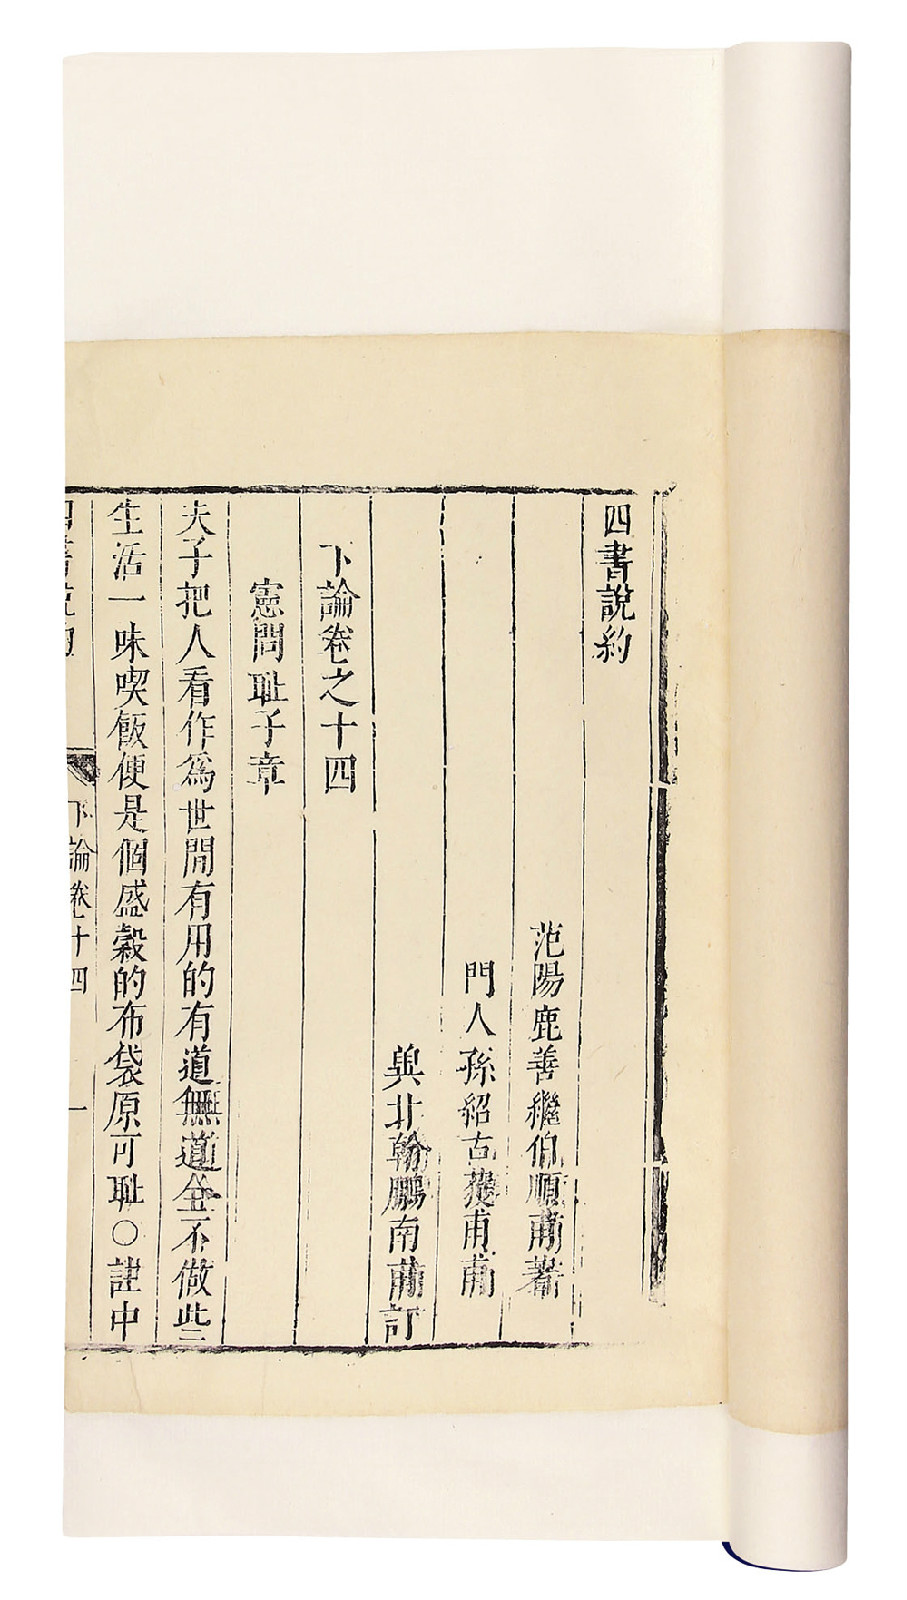 四書說約
范陽鹿善繼伯順甫著
門人孫紹古甫
北翰鵬南甫訂
下論卷之十四
憲問耻子章
夫子把人看作爲世間有用的有道無道全不做些
生活一味喫飯便是個盛穀的布袋原可耻○註中
四書說約 下論卷十四 一